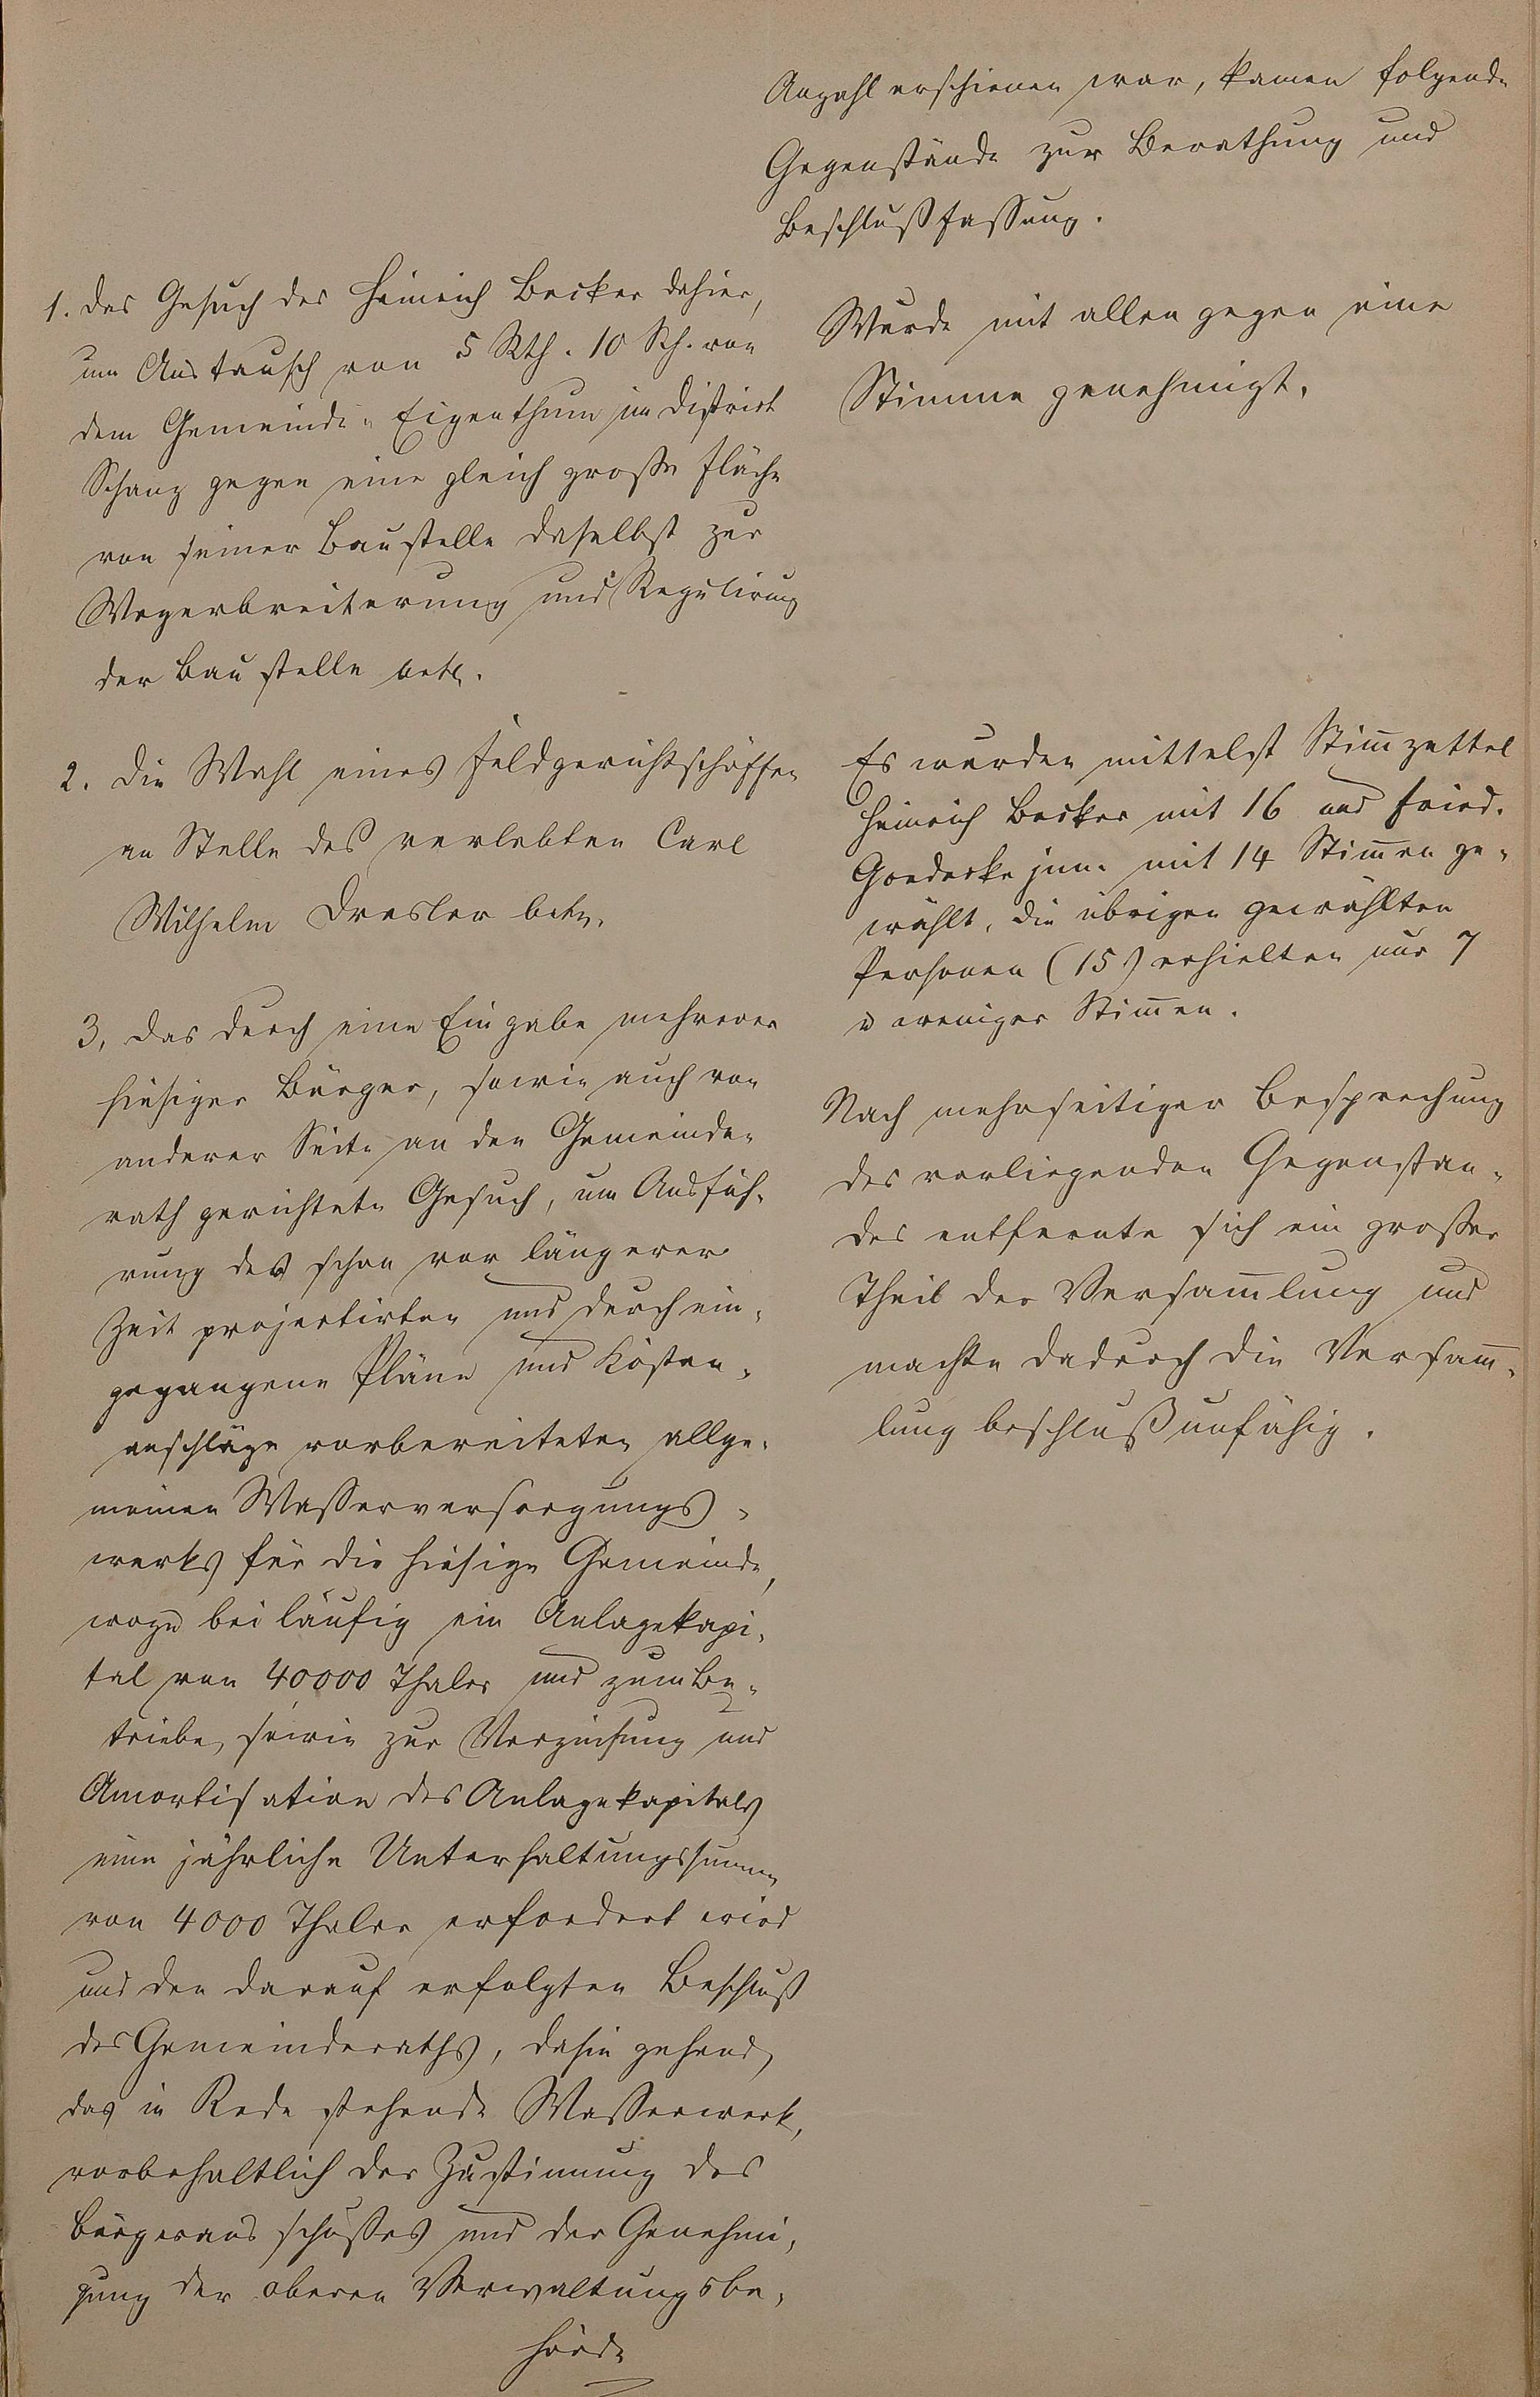 Anzahl erschienen war, kamen folgende
Gegenstände zur Berathung und
Beschlußfassung.
1. Das Gesuch des Heinrich Becker dahier,
um Austausch von 5 Rth. 10 Sch. von
dem Gemeinde-Eigenthum im District
Schanz gegen eine gleich große Fläche
von seiner Baustelle daselbst zur
Wegerbreiterung und Regulirung
der Baustelle betr.
Wurde mit allen gegen eine
Stimme genehmigt.
2. Die Wahl eines Feldgerichtschöffen
an Stelle des verlebten Carl
Wilhelm Dresler betr.
Es wurden mittelst Stim̅zettel
Heinrich Becker mit 16 und Fried.
Goedecke jun. mit 14 Stim̅en ge-
wählt, die übrigen gewählten
Personen (15) erhielten nur 7
u weniger Stim̅en.
3, Das durch eine Eingabe mehrerer
hiesiger Bürger, sowie auch von
anderer Seite an den Gemeinde-
rath gerichtete Gesuch, um Ausfüh-
rung des schon vor längerer
Zeit projectirten und durch ein-
gegangene Pläne und Kosten-
anschläge vorbereiteten allge-
meinen Wasserversorgungs-
werks für die hiesige Gemeinde,
wozu beiläufig ein Anlagekapi-
tal von 40000 Thaler und zum Be-
triebe, sowie zur Verzinsung und
Amortisation des Anlagekapitals
eine jährliche Unterhaltungssumme
von 4000 Thaler erfordert wird
und den darauf erfolgten Beschluß
des Gemeinderaths, dahin gehend,
das in Rede stehende Wasserwerk,
vorbehaltlich der Zustimung des
Bürgerausschußes und der Genehmi-
gung der oberen Verwaltungsbe-
hörde
Nach mehrseitiger Besprechung
des vorliegenden Gegenstan-
des entfernte sich ein großer
Theil der Versam̅lung und
machte dadurch die Versam̅-
lung beschlußunfähig.